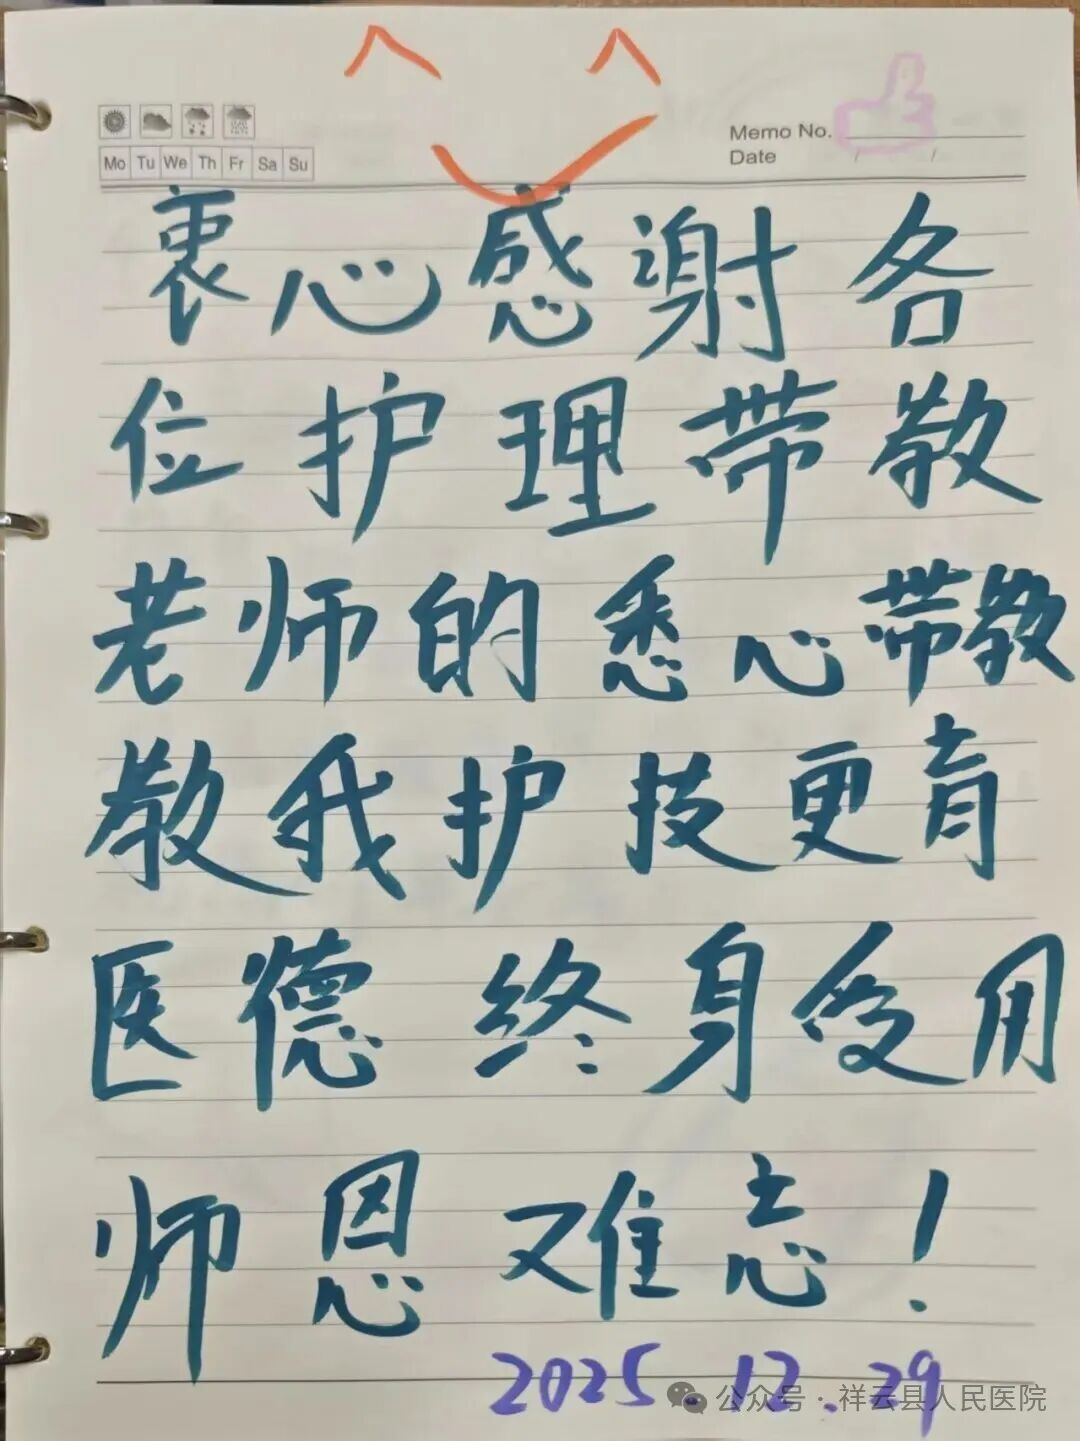 Memo No.
Date / /
Mo Tu We Th Fr Sa Su
衷心感谢各
位护理带教
老师的悉心带教
教我护技更育
医德 终身受用
师恩难忘!
2025.12.29
公众号·祥云县人民医院